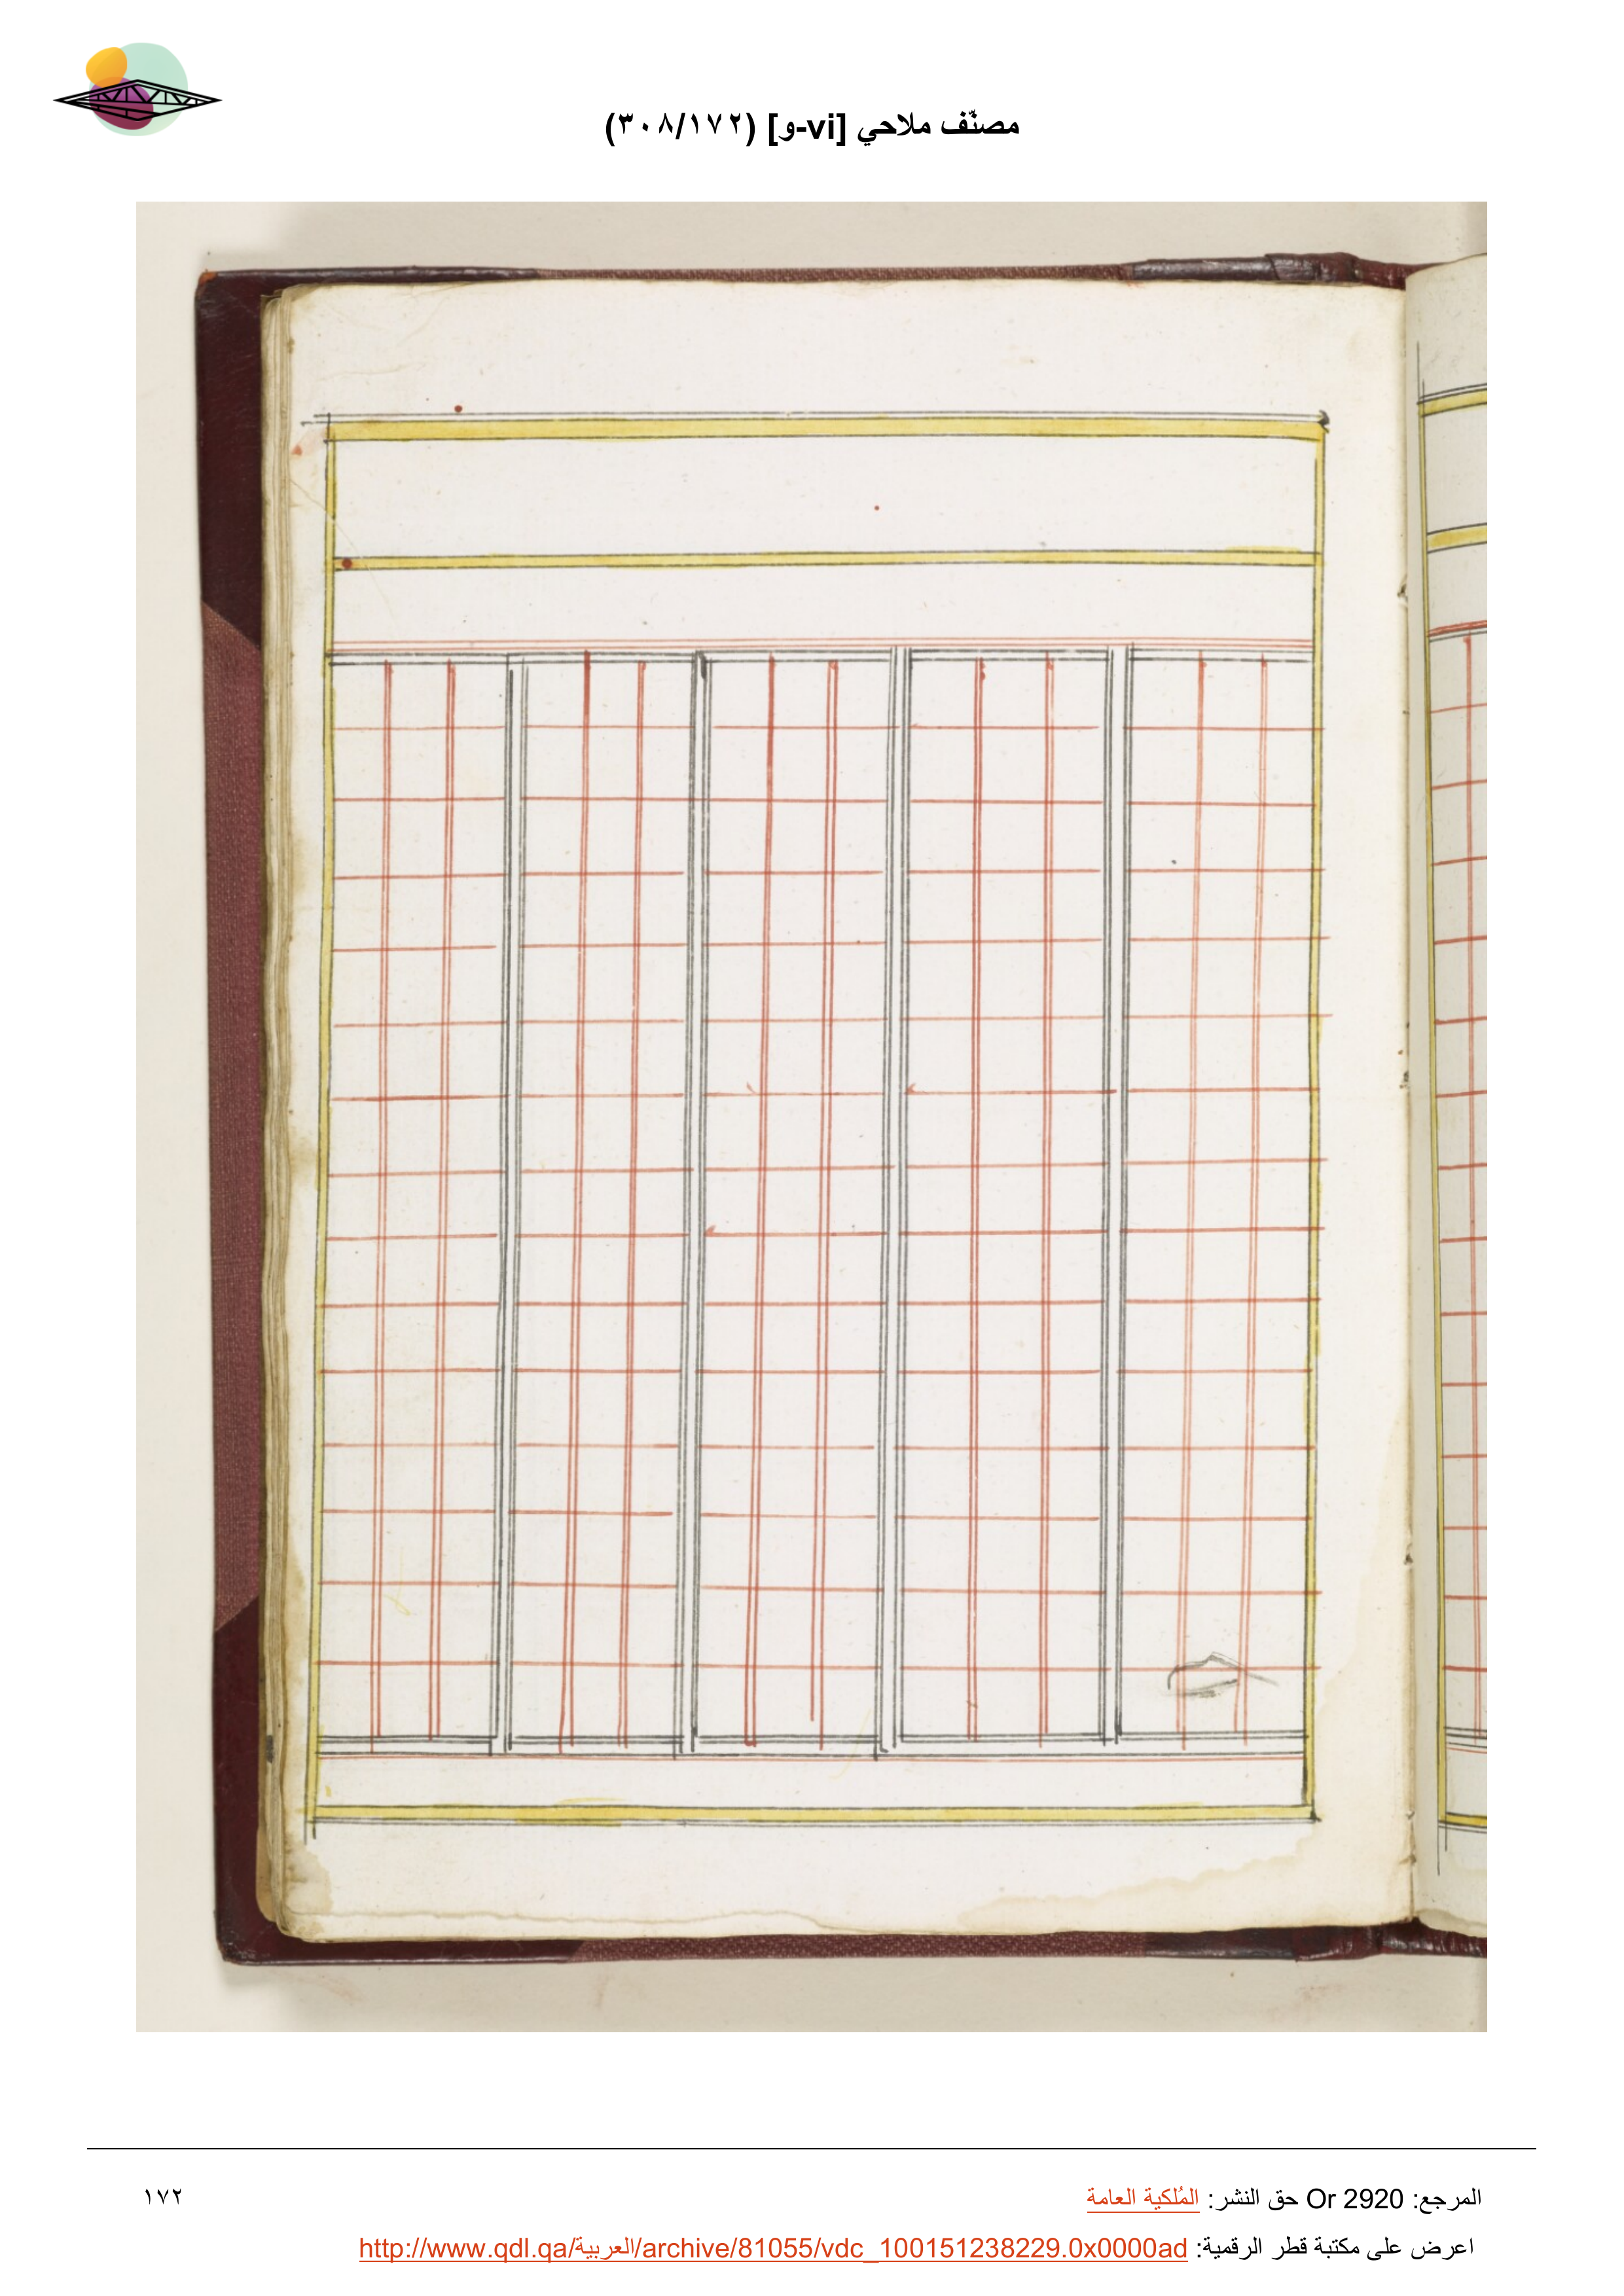 مصنّف ملاحي [vi-و] (٣٠٨/١٧٢)
المرجع: Or 2920 حق النشر: المُلكية العامة
١٧٢
اعرض على مكتبة قطر الرقمية: http://www.qdl.qa/العربية/archive/81055/vdc_100151238229.0x0000ad